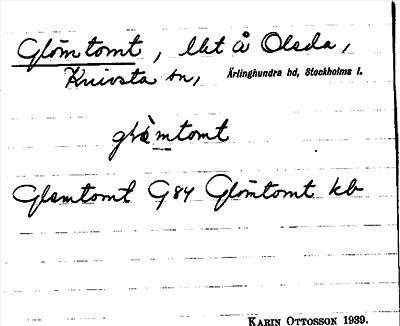 Glömtomt, lht å Olsda,
Knivsta sn, Ärlinghundra hd, Stockholms l.
glö̀mtomt
Glamtomt G 84 Glömtomt kb
KARIN OTTOSSON 1939.